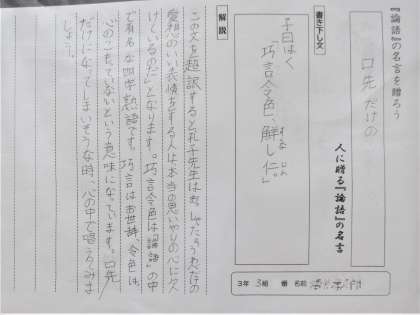 『論語』の名言を贈ろう
口先だけの
人に贈る『論語』の名言
3年 3組 番 名前
書き下し文
子曰はく
「巧言令色、鮮し仁。」
すくな じん
解説
この文を超訳すると孔子先生は
愛想のいい表情をする人は本当の思いやりの心に欠
けているのだ」となります。巧言令色は論語の中
で有名な四字熟語です。巧言はお世辞、令色は
心のこもっていないという意味になっています。口先
だけになってしまいそうな時、心の中で唱えてみま
しょう。